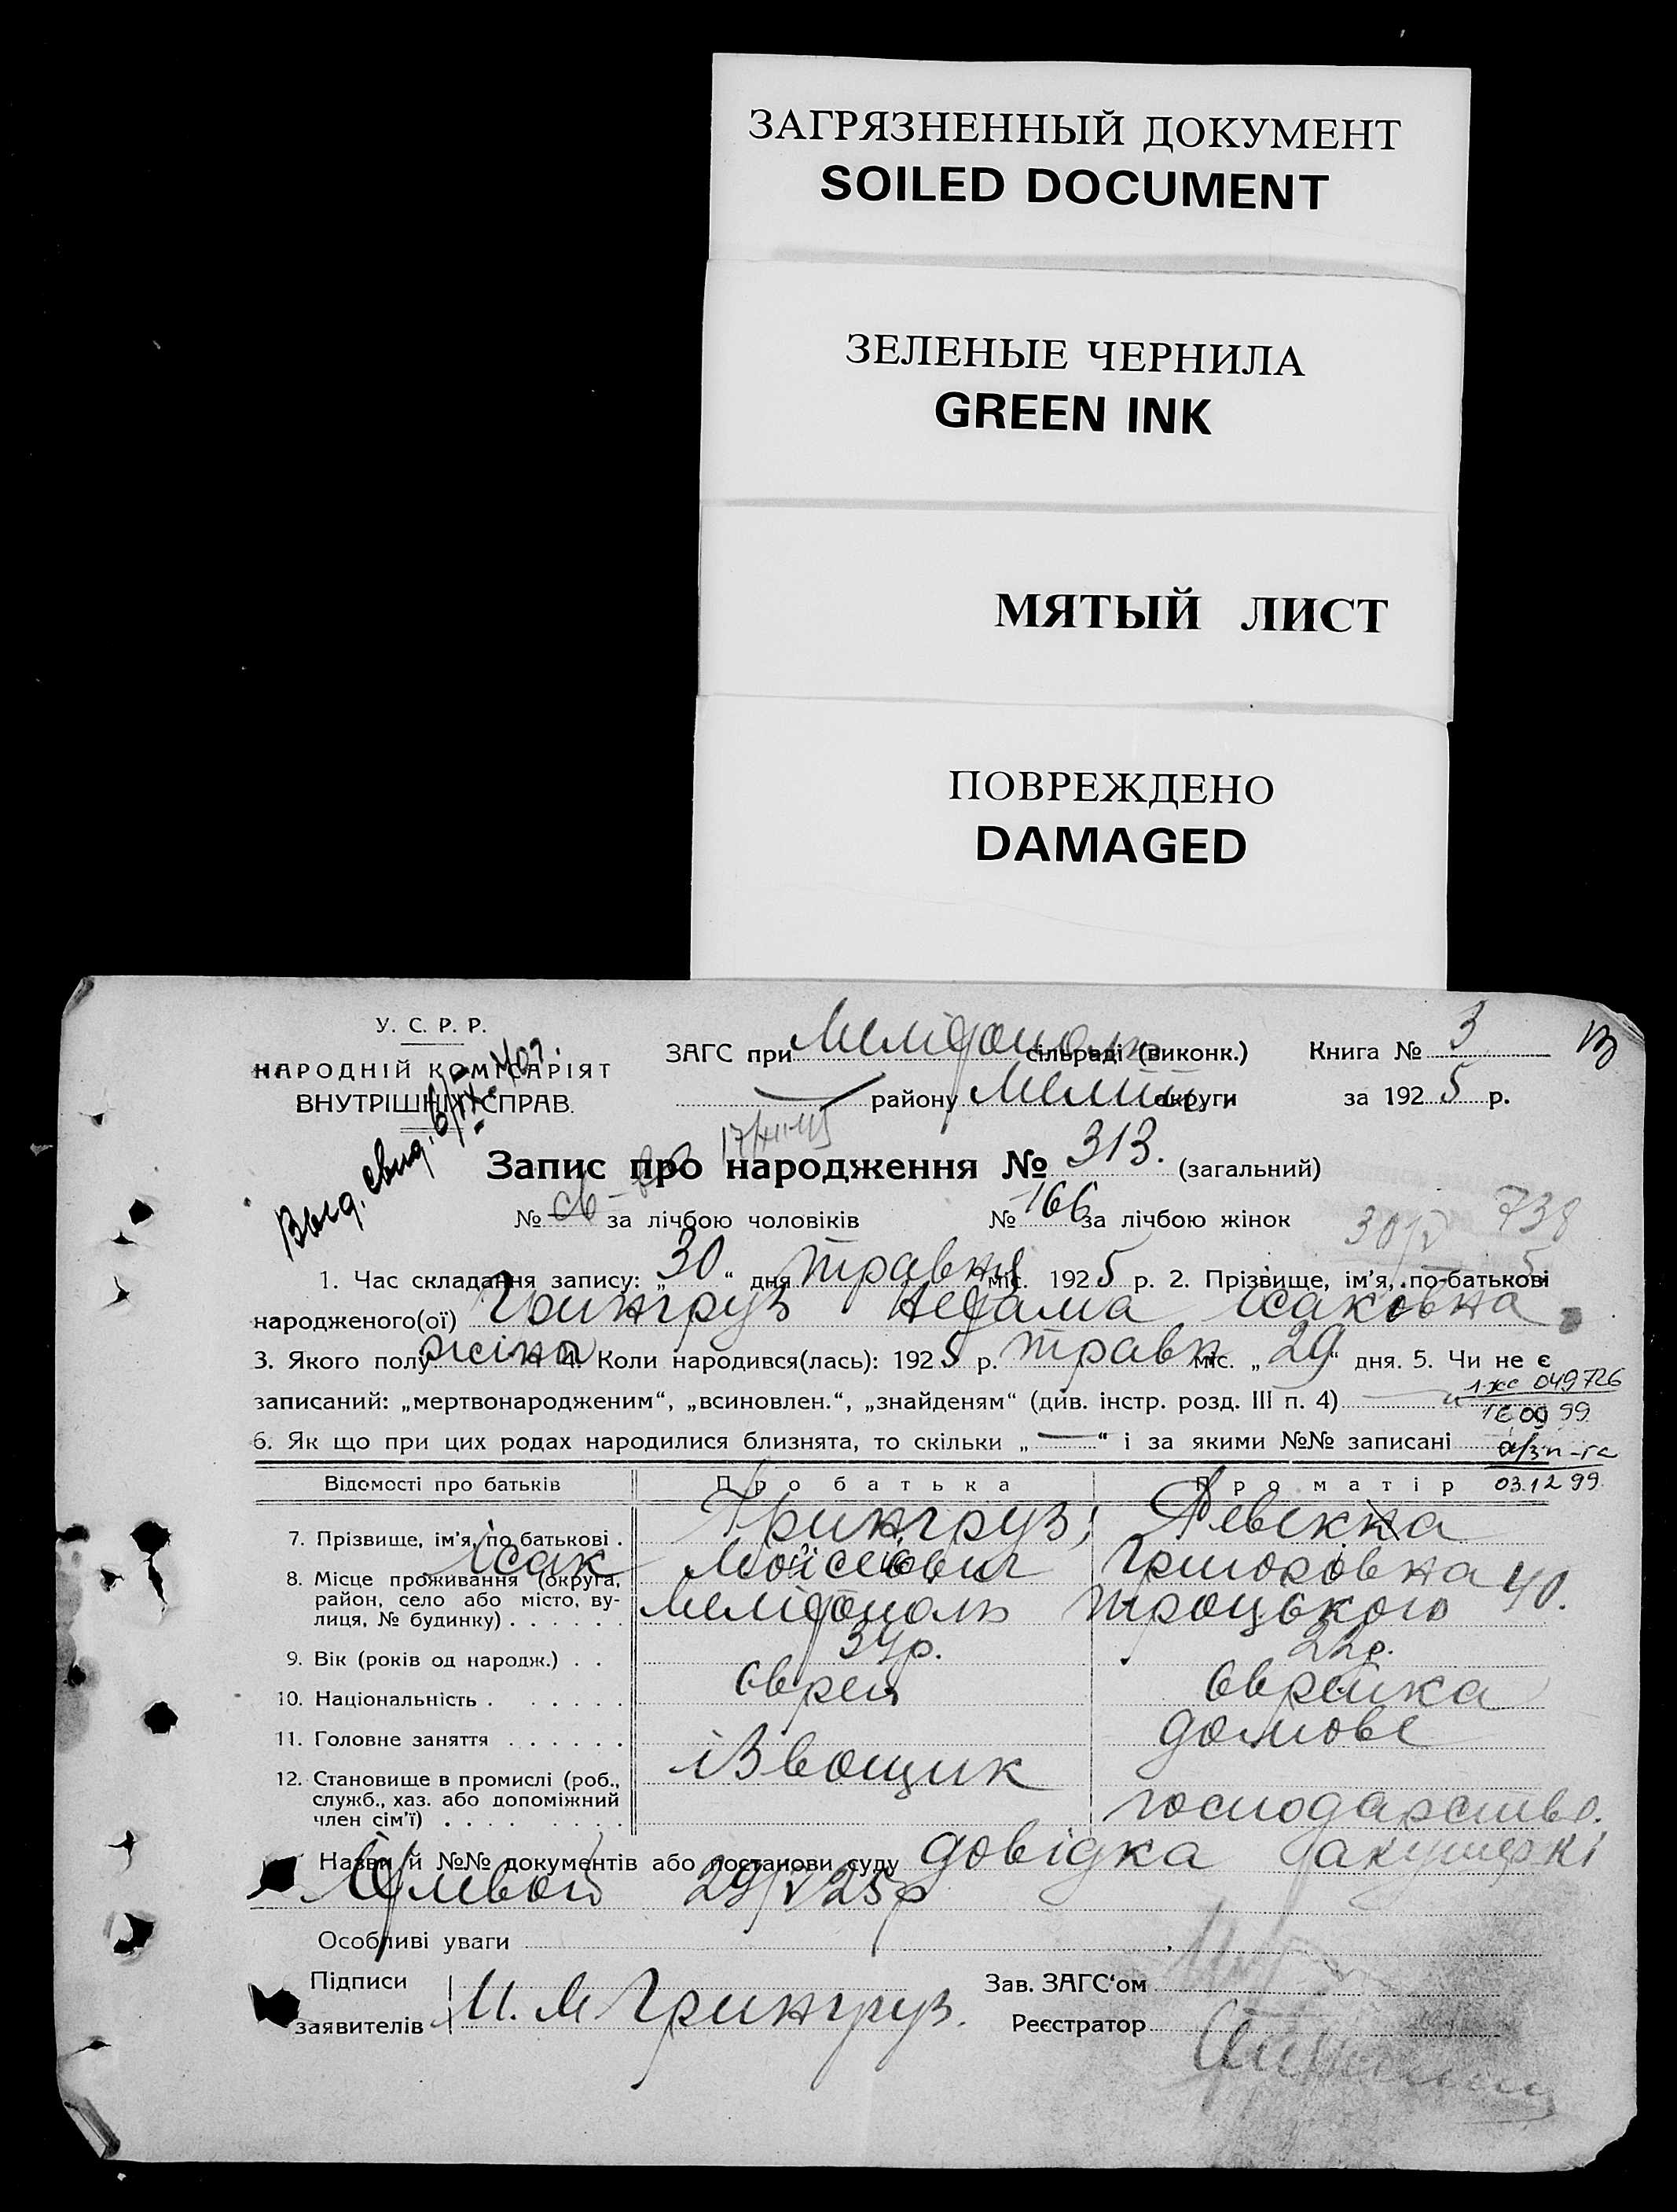 ЗАГРЯЗНЕННЫЙ ДОКУМЕНТ
SOILED DOCUMENT
ЗЕЛЕНЫЕ ЧЕРНИЛА
GREEN INK
МЯТЫЙ ЛИСТ
ПОВРЕЖДЕНО
DAMAGED
У. С. Р. Р.
НАРОДНІЙ КОМІСАРІЯТ
ВНУТРІШНІХ СПРАВ.
ЗАГС при Мелідополь сільраді (виконк.) Книга № 3
району Меліт. округи за 1925 р.
Выд. свид.
17/XII-45
Запис про народження № 313. (загальний)
№ за лічбою чоловіків № 166 за лічбою жінок
30/V 738
1. Час складання запису: „30“ дня травня міс. 1925 р. 2. Прізвище, ім’я, по-батькові
народженого(ої) Грингруз Ісаковна
3. Якого полу жіноч 4. Коли народився(лась): 1925 р. травн міс. „29“ дня. 5. Чи не є
записаний: „мертвонародженим“, „всиновлен.“, „знайденям“ (див. інстр. розд. III п. 4)
049726
6. Як що при цих родах народилися близнята, то скільки „—“ і за якими №№ записані
03.12 99
Відомості про батьків Про батька Про матір
7. Прізвище, ім’я, по батькові . Грингруз, Ревекка
Ісак Мойсеєвич Григоровна
8. Місце проживання (округа, район, село або місто, вулиця, № будинку) . . . . . . Мелідополь Троцького 40.
9. Вік (років од народж.) . . 34р. 22р.
10. Національність . . . . . . Єврей Єврейка
11. Головне заняття . . . . . . ізвощик домове
12. Становище в промислі (роб., служб., хаз. або допоміжний член сім’ї) . . . . . . . . господарство.
Назви й №№ документів або постанови суду довідка акушеркі
29/V 25р
Особливі уваги
Підписи
заявителів И. М Грингруз.
Зав. ЗАГС‘ом
Реєстратор